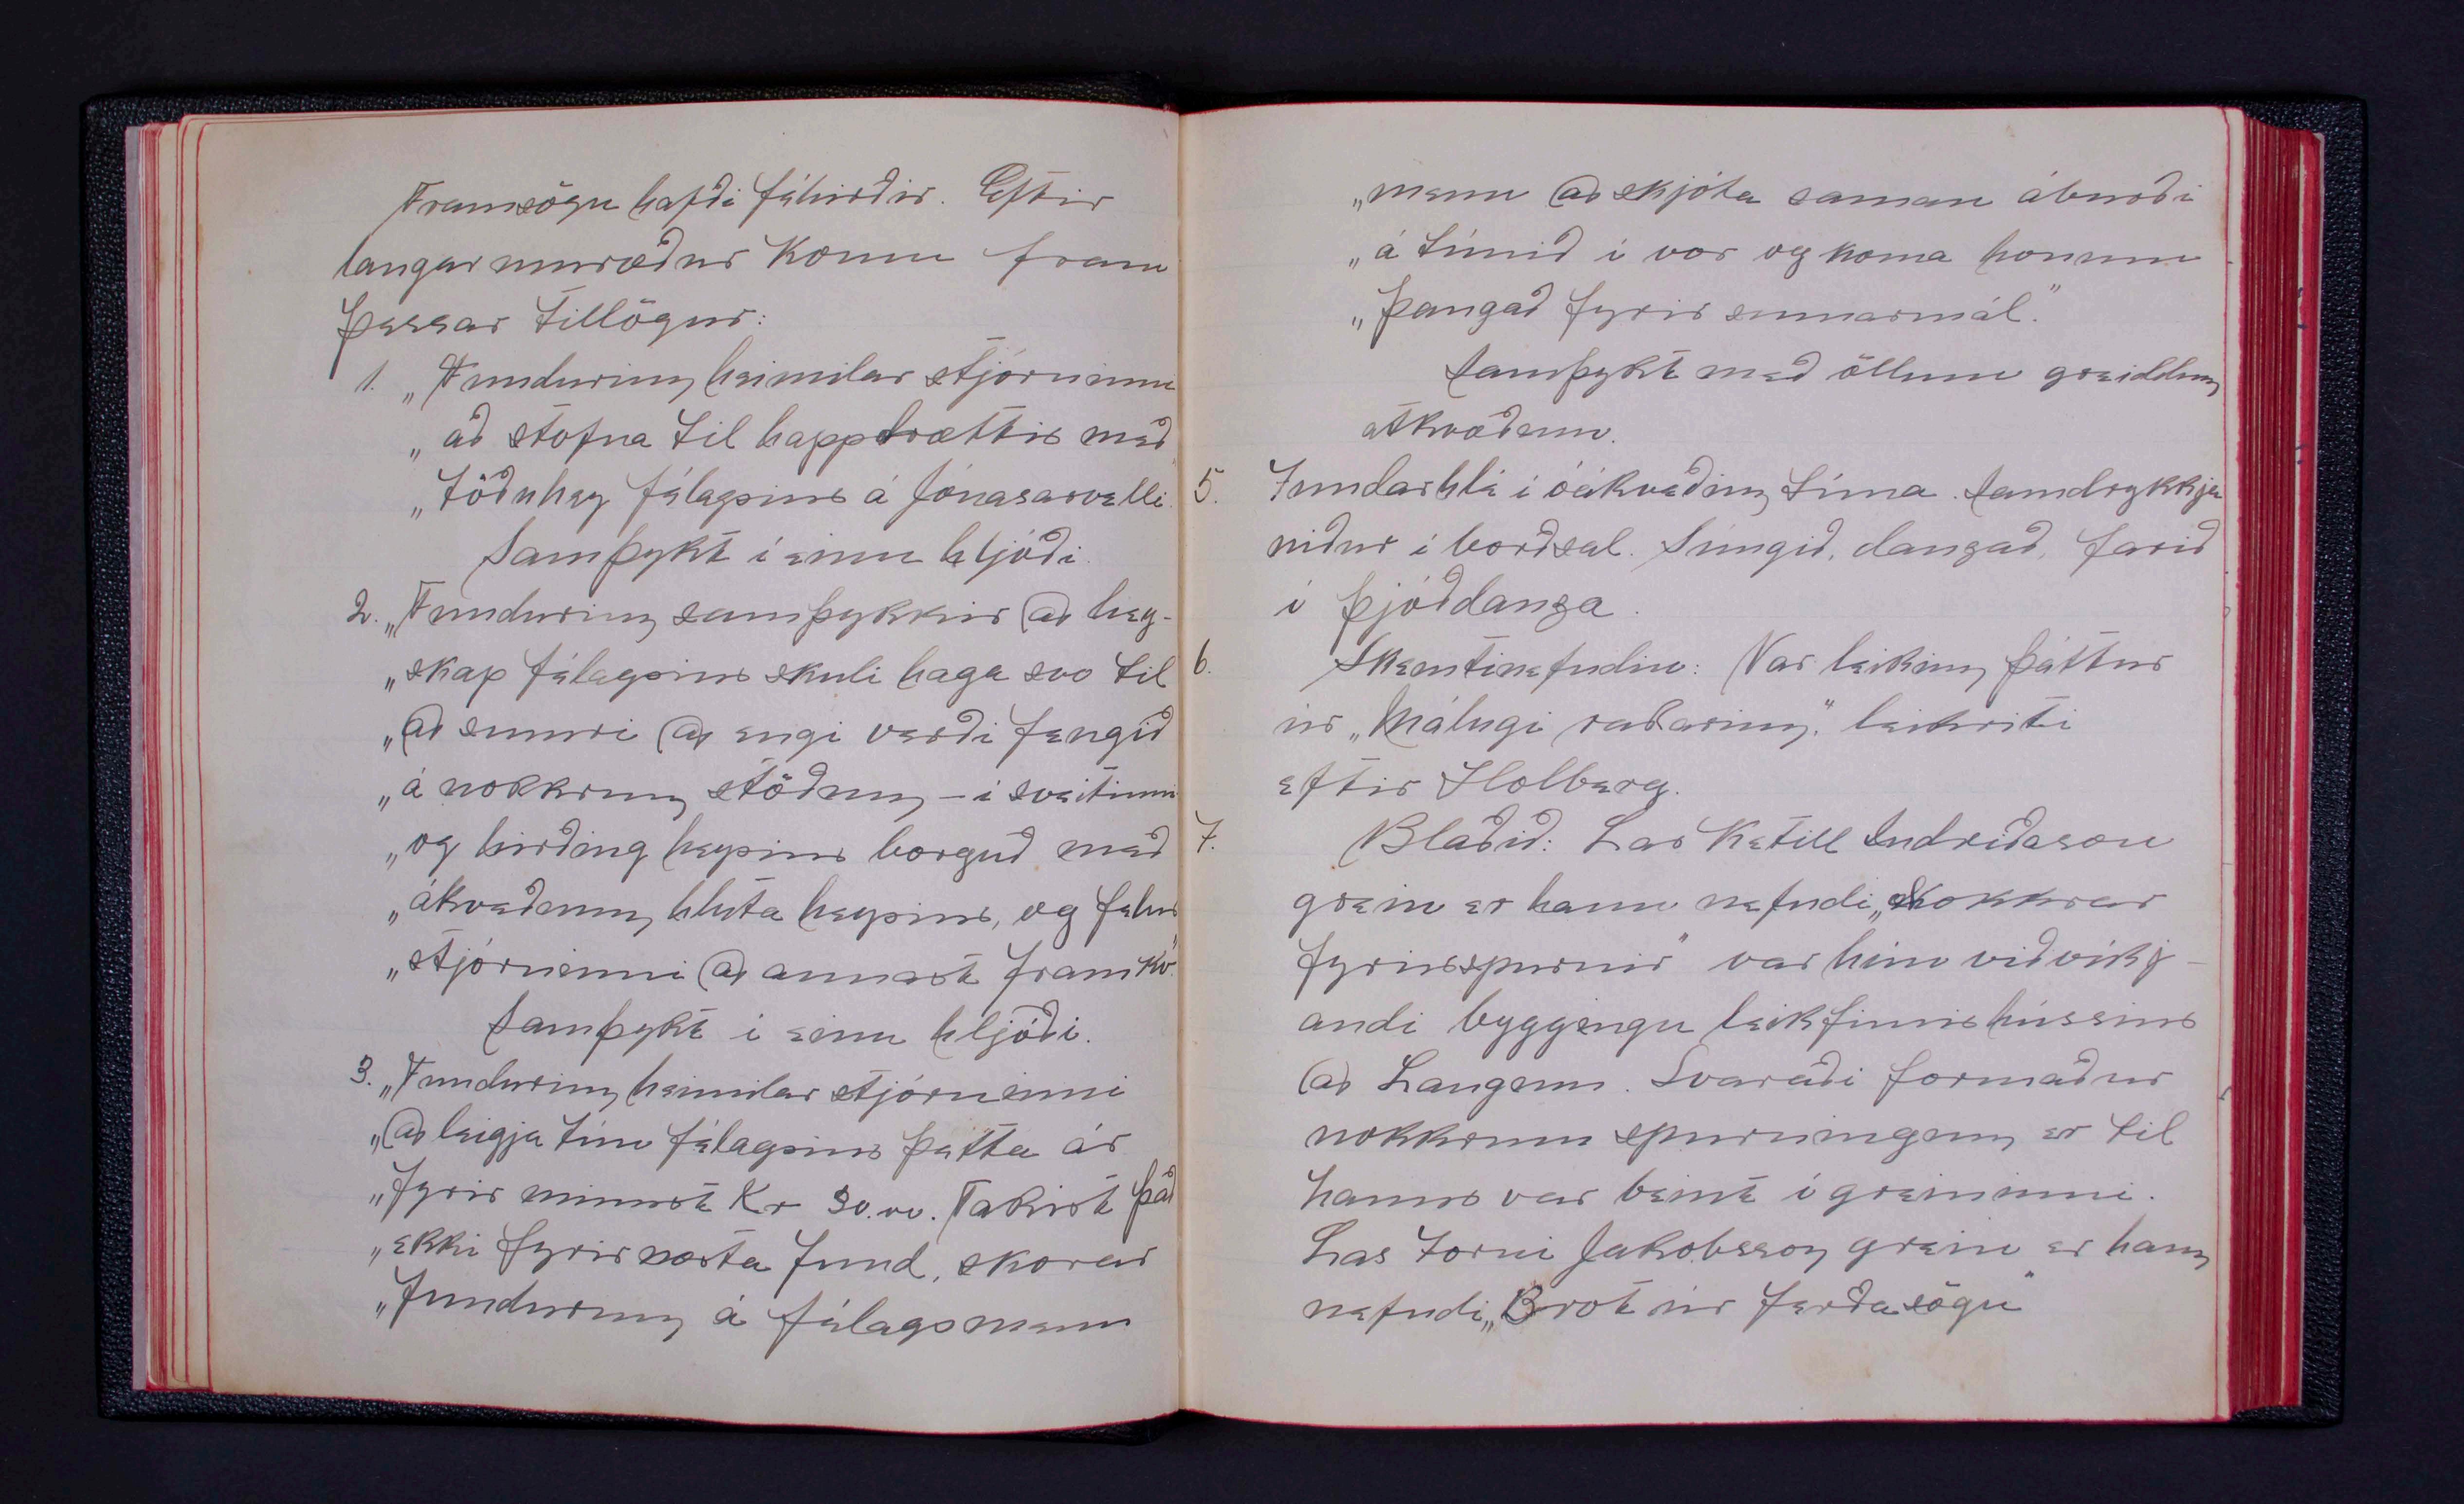 Framsögu hafði féhirðir. Eftir
langar umræður komu fram
þessar tillögur:
1. „Fundurinn heimilar stjórninni
„að stofna til happdrættis með
„töðuhey félagsins á Jónasarvelli.
Samþykt í einu hljóði.
2. „Fundurinn samþykkir að hey-
„skap félagsins skuli haga svo til
„að sumri að engi verði fengið
„á nokkrum stöðum - í sveitinni
„og hirðing heysins borguð með
„ákveðnum hluta heysins, og felur
„stjórninni að annast framkv."
Samþykt í einu hljóði.
3. „Fundurinn heimilar stjórninni
„að leigja tún félagsins þetta ár
„fyrir minnst Kr 30.00. Takist það
„ekki fyrir næsta fund, skorar
„fundurinn á félagsmenn
„menn að skjóta saman áburði
„á túnið í vor og koma honum
„þangað fyrir sumarmál."
Samþykt með öllum greiddum
atkvæðum.
5. Fundarhlé í óákveðinn tíma. Samdrykkja
niður í borðsal. Súngið, dansað, farið
í þjóðdansa.
6. Skemtinefndin: Var leikinn þáttur
úr „Málugi rakarinn," leikriti
eftir Holberg.
7. Blaðið: Las Ketill Indriðason
grein er hann nefndi „Nokkrar
fyrirspurnir" var hún viðvíkj-
andi byggingu leikfimishússins
að Laugum. Svaraði formaður
nokkrum spurningum er til
hanns var beint í greininni.
Las Torfi Jakobsson grein er hann
nefndi „Brot úr ferðasögu"